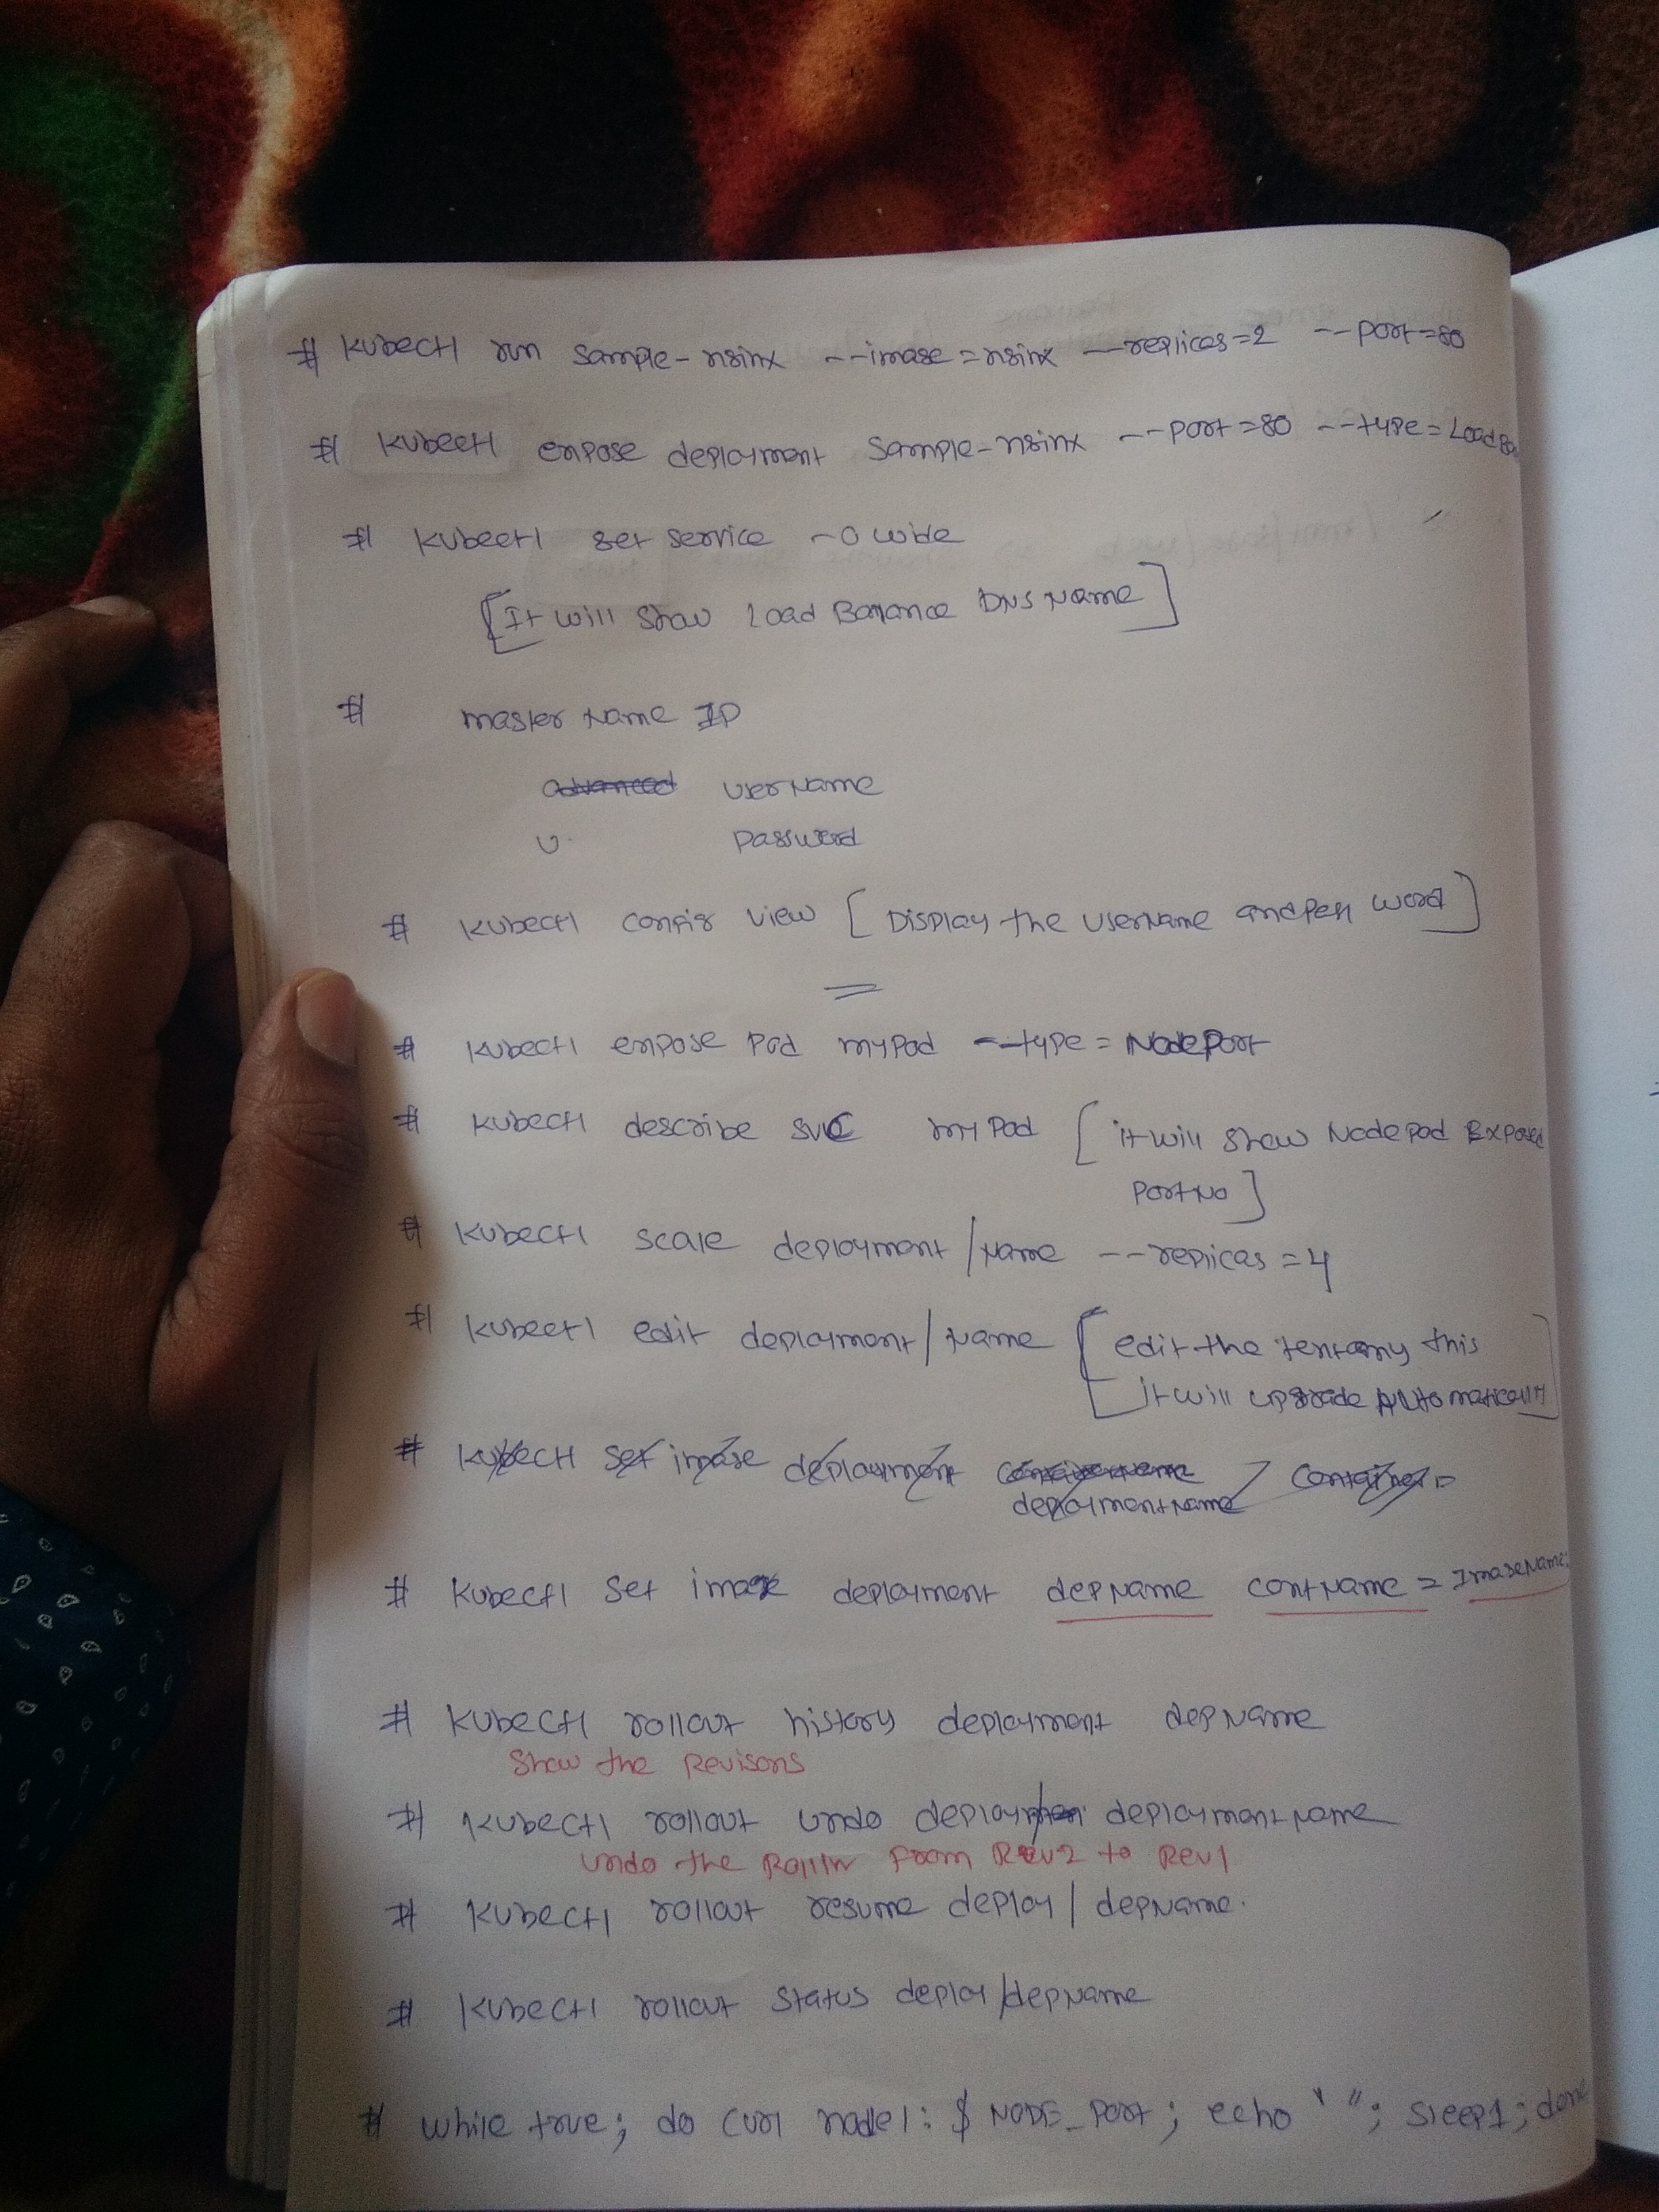 # kubectl run sample-nginx --image=nginx --replicas=2 --port=80
# kubectl expose deployment sample-nginx --port=80 --type=LoadBa
# kubectl get service -o wide
[It will show Load Balance DNS Name]
# master Name IP
advanced username
U. password
# kubectl config view [Display the username and pass word]
# kubectl expose pod mypod --type=NodePort
# kubectl describe svc mypod [it will show Nodepod Exposed
port No]
# kubectl scale deployment/Name --replicas=4
# kubectl edit deployment/Name [edit the this
it will upgrade Automatically]
# kubectl set image deployment containername / container=
deploymentname
# kubectl set image deployment depName contName = ImageName:
# kubectl rollout history deployment depName
Show the Revisons
# kubectl rollout undo deployment deploymentName
undo the from Rev2 to Rev1
# kubectl rollout resume deploy/depName.
# kubectl rollout status deploy/depName
# while true; do curl node1:$NODE_Port; echo " "; sleep1; done